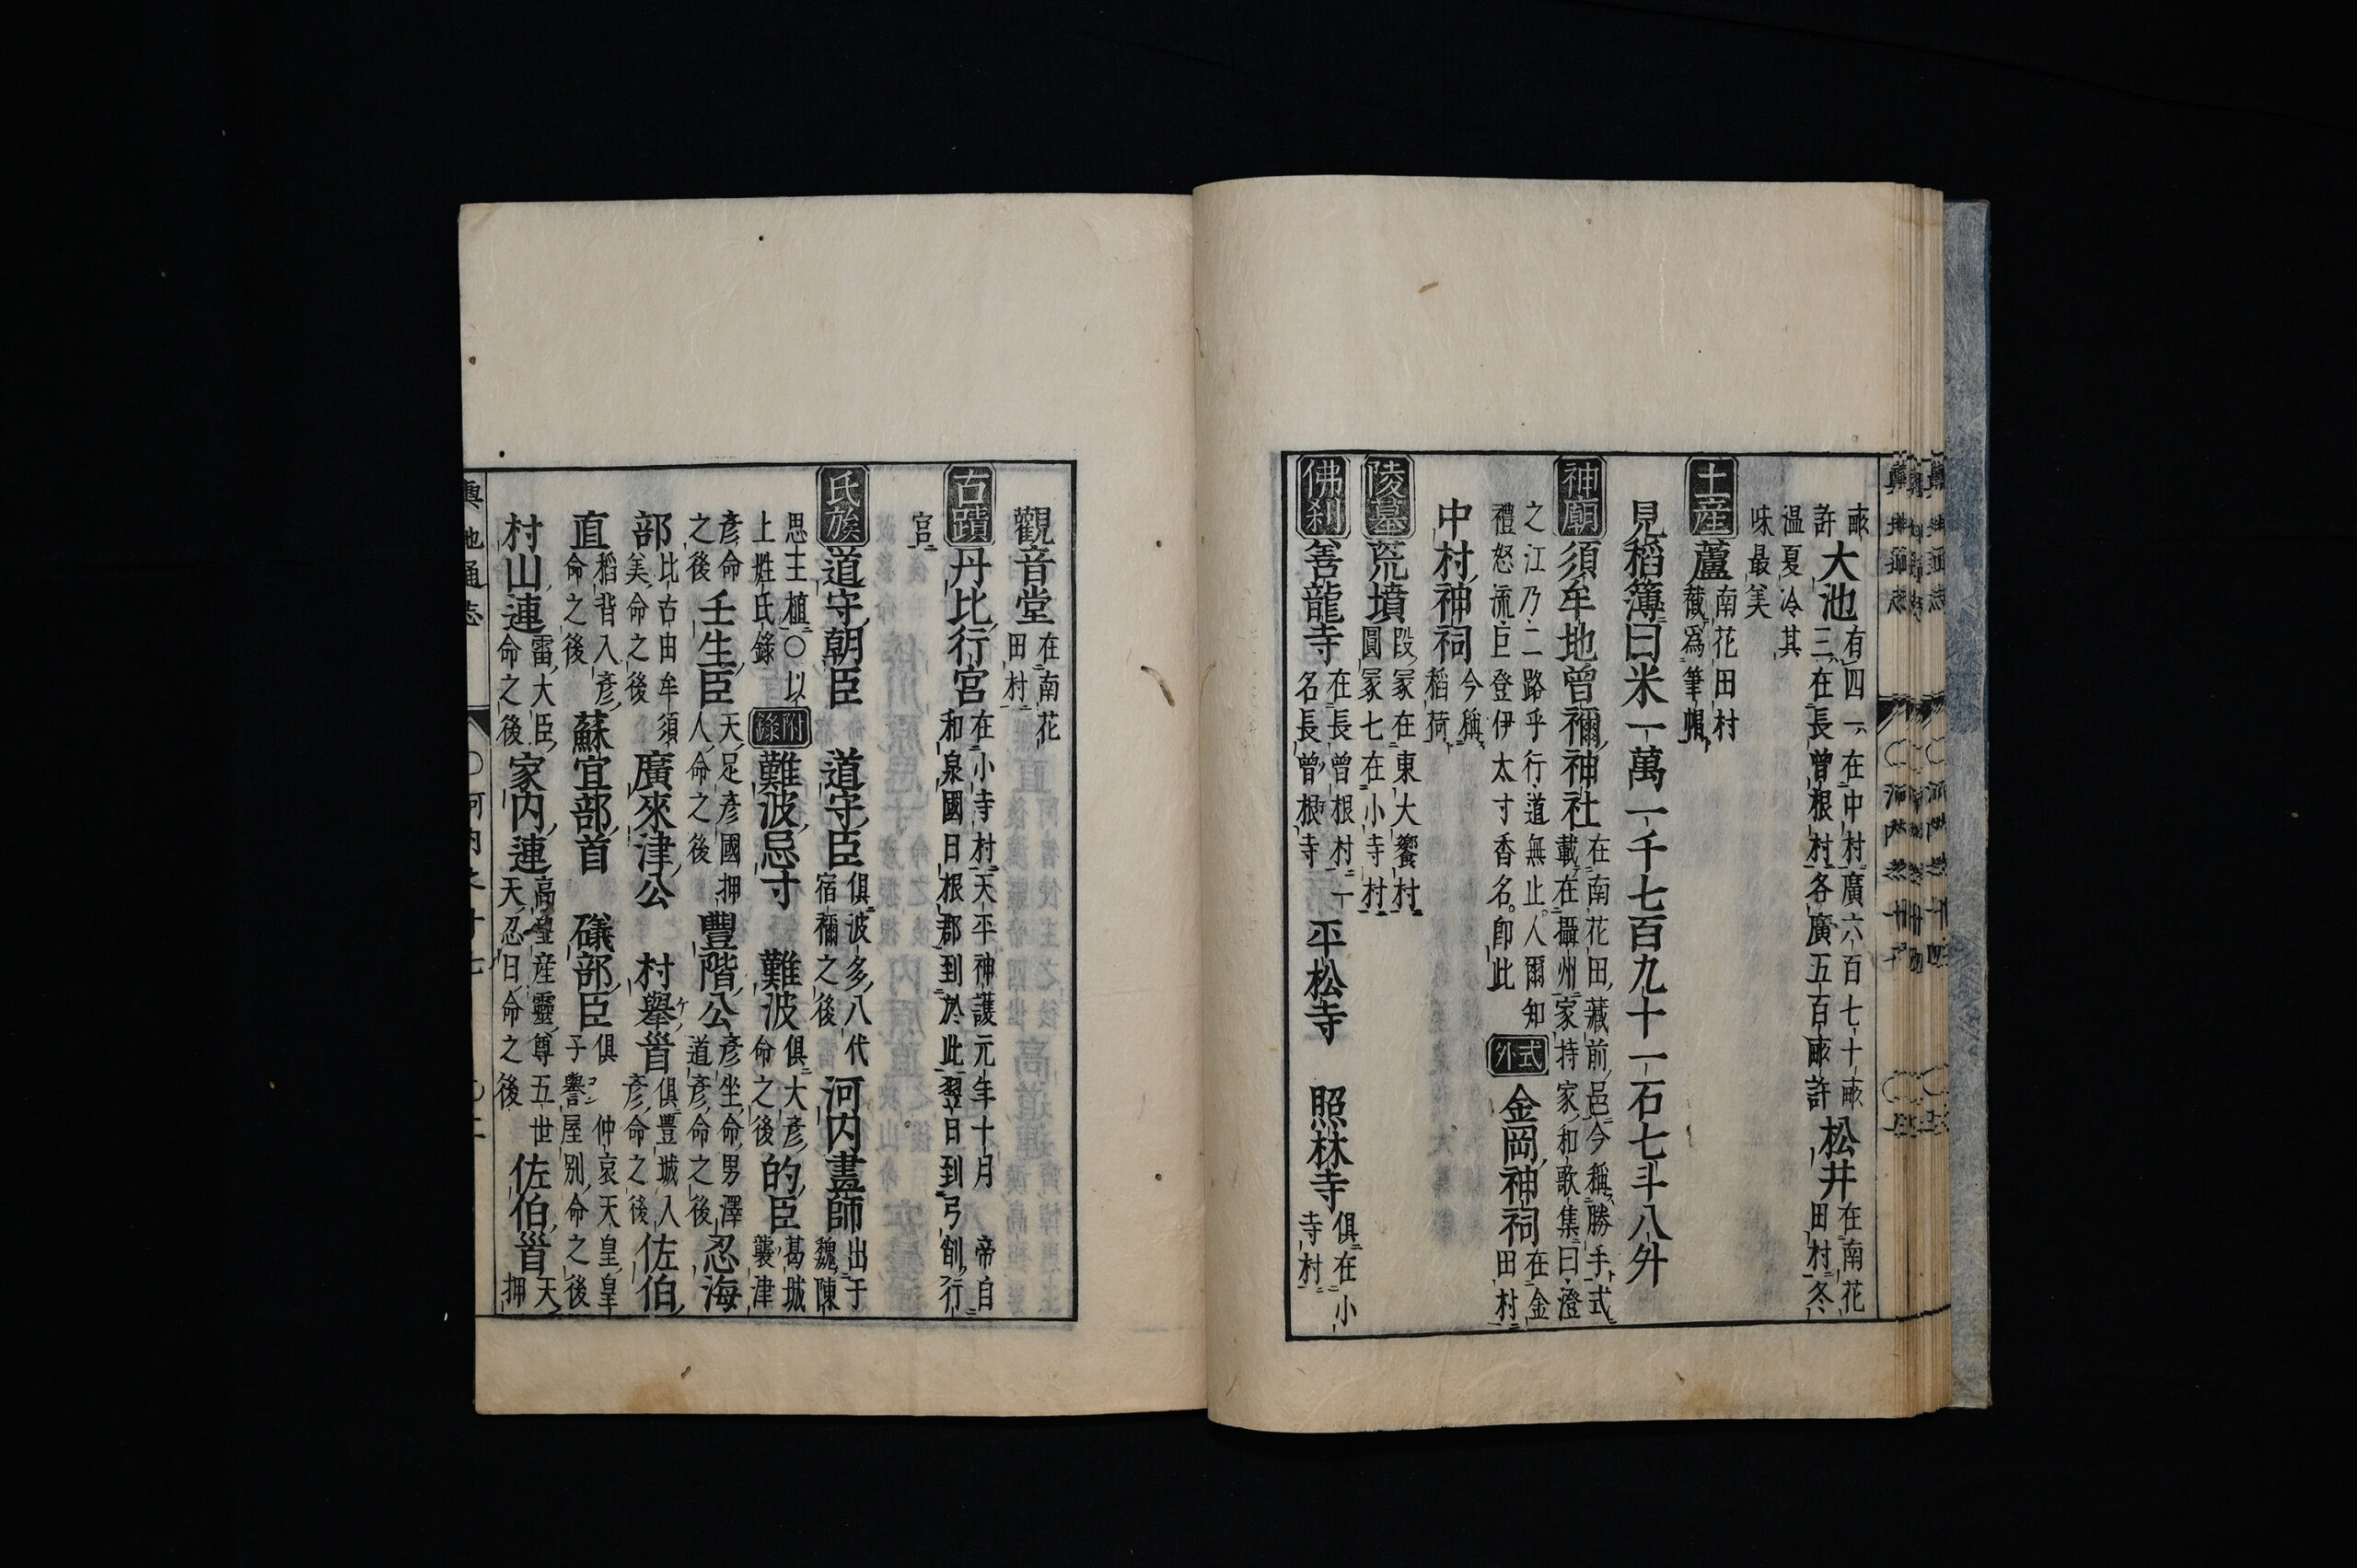 畝許大池有四一在中村廣六百七十畝三在長曾根村各廣五百畝許松井在南花田村冬
温夏冷其味最美
土産蘆南花田村截爲筆帽
見稻簿曰米一萬一千七百九十一石七斗八升
神廟須牟地曾禰神社在南花田藏前邑今稱勝手式載在攝州家持家和歌集曰澄
之江乃二路乎行道無止人爾知禮怒流巨登伊太寸香名即此式外金岡神祠在金田村
中村神祠今稱稻荷
陵墓荒墳段冢在東大饗村圓冢七在小寺村
佛刹善龍寺在長曾根村一名長曾根寺平松寺照林寺俱在小寺村
觀音堂在南花田村
古蹟丹比行宮在小寺村天平神護元年十月帝自和泉國日根郡到於此翌日到弓削行
宮
氏族道守朝臣道守臣俱波多八代宿禰之後河内畫師出于魏陳
思王植○以上姓氏錄附錄難波忌寸難波俱大彦命之後的臣葛城襲津
彦命之後壬生臣天足彦國押人命之後豐階公彦坐命男澤道彦命之後忍海
部比古由牟須美命之後廣來津公村擧首俱豐城入彦命之後佐伯
直稻背入彦命之後蘇宜部首礒部臣俱仲哀天皇皇子譽屋別命之後
村山連雷大臣命之後家内連高皇産靈尊五世天忍日命之後佐伯首天押
輿地通志
○河内